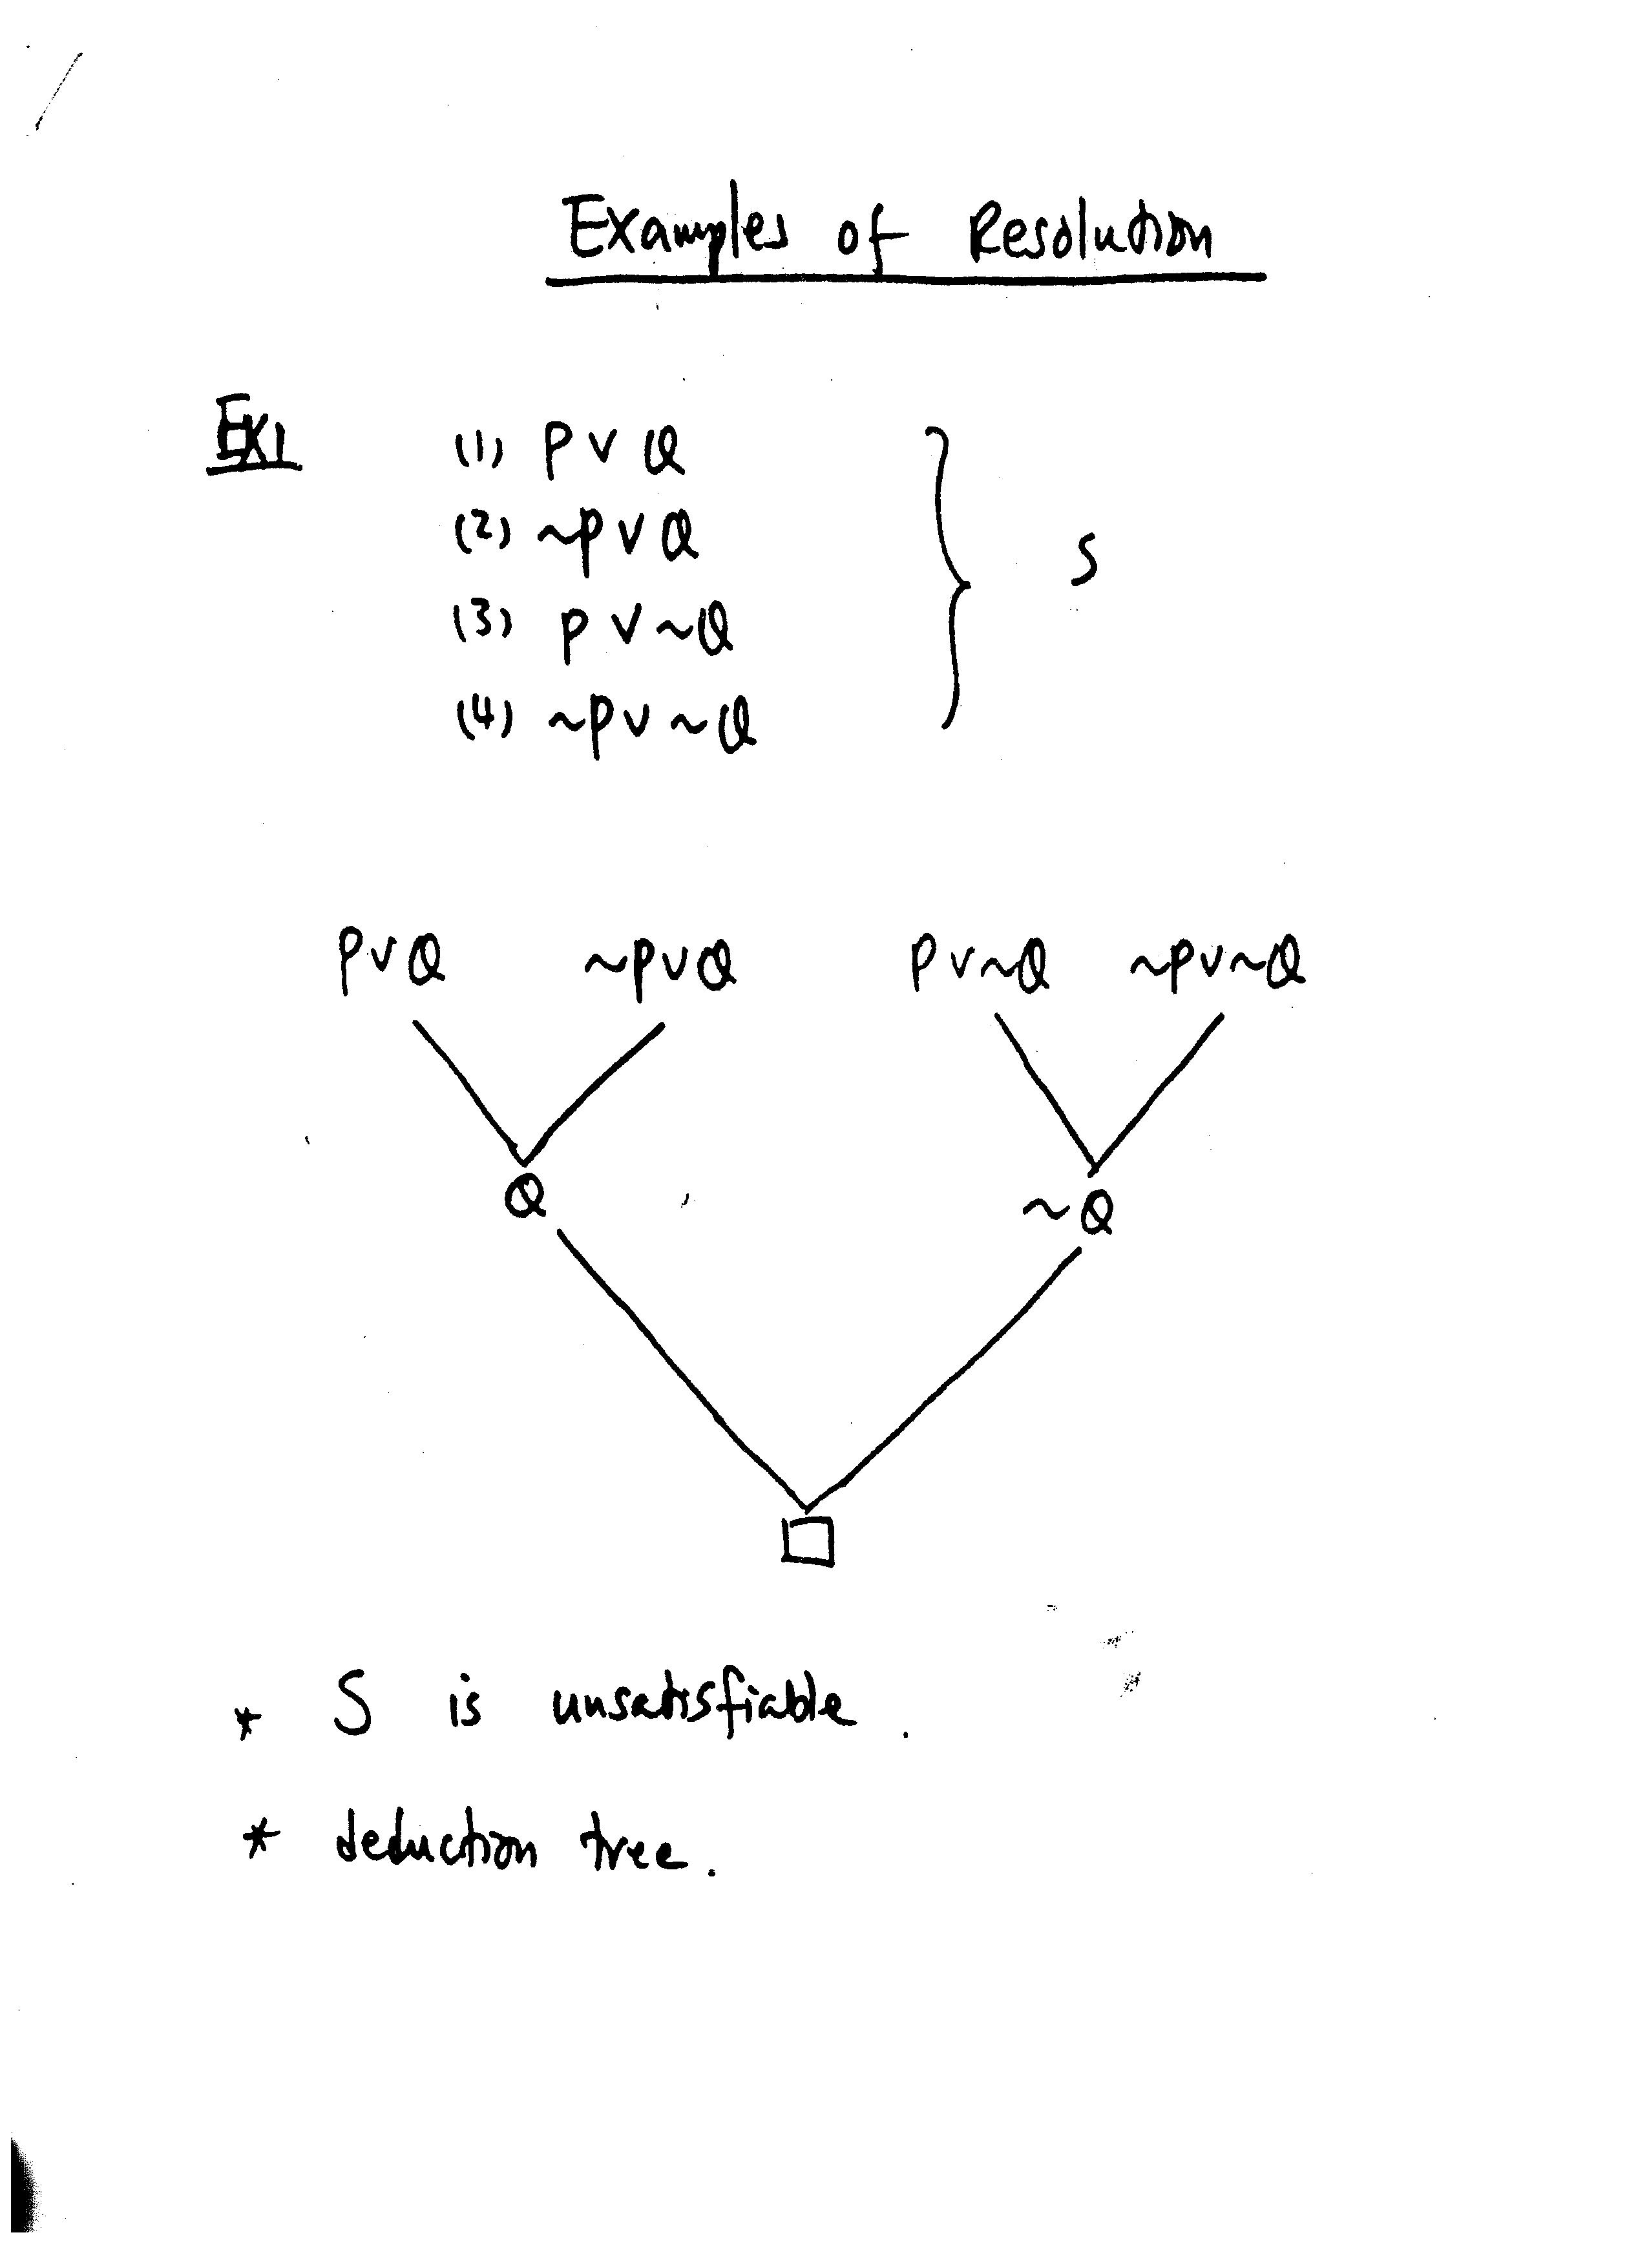 Examples of Resolution
EX1 (1) P ∨ Q
(2) ~P ∨ Q
S
(3) P ∨ ~Q
(4) ~P ∨ ~Q
P∨Q ~P∨Q P∨~Q ~P∨~Q
Q ~Q
* S is unsatisfiable.
* deduction tree.